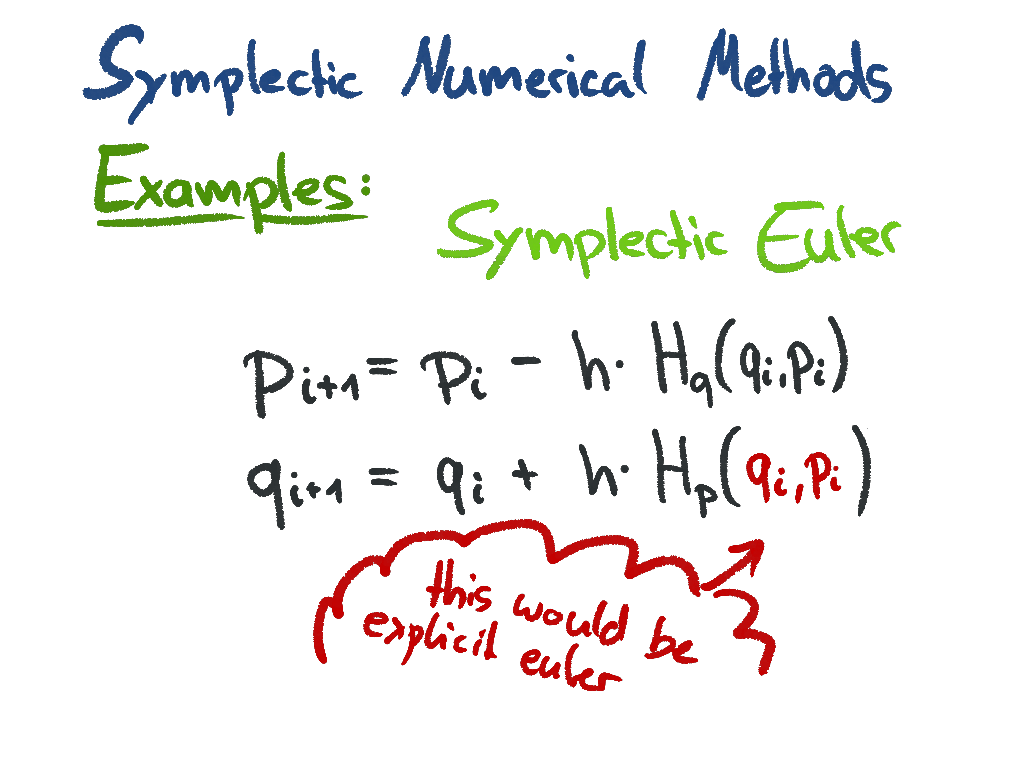 Symplectic Numerical Methods
Examples:
Symplectic Euler
p_{i+1} = p_i - h · H_q(q_i, p_i)
q_{i+1} = q_i + h · H_p(q_i, p_i)
this would be
explicit euler